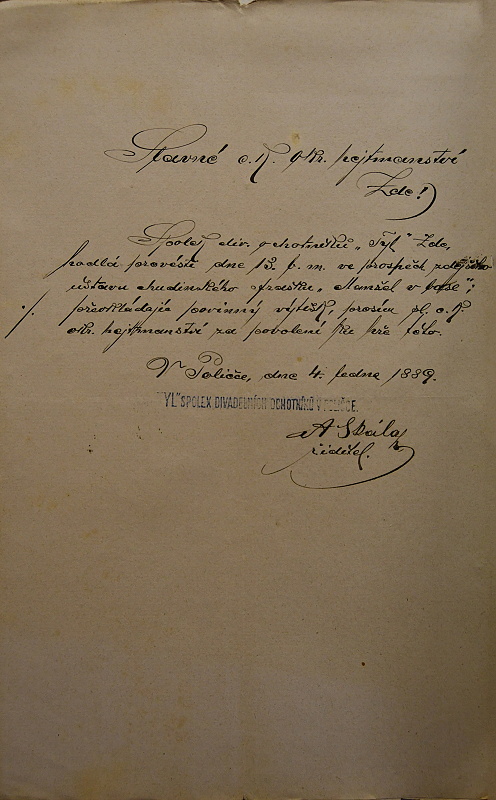 Slavné c. k. okr. hejtmanství
Zde!
Spolek div. ochotníků „Tyl“ Zde,
hodlá provésti dne 13. t. m. ve prospěch zdejšího
ústavu chudinského frašku „Manžel v
předkládajíc povinný výtisk, prosím sl. c. k.
okr. hejtmanství za povolení ku hře této.
V Poličce, dne 4. ledna 1889.
TYL" SPOLEK DIVADELNÍCH OCHOTNÍKŮ V POLIČCE.
A Skála
ředitel.